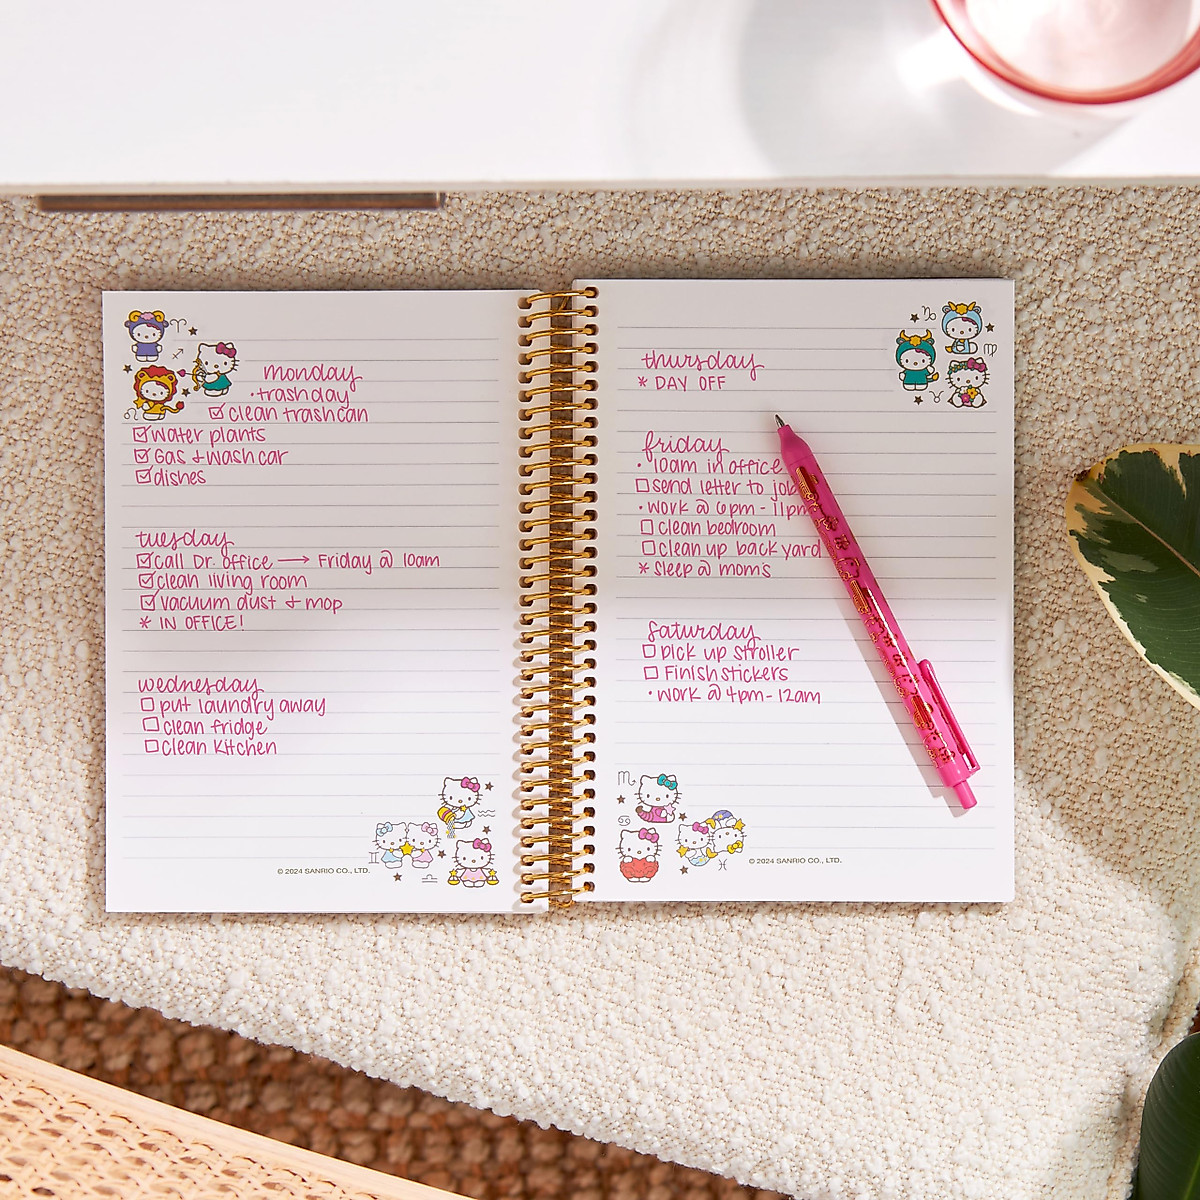 monday
• trash day
☑ clean trash can
☑ water plants
☑ Gas & wash car
☑ dishes
tuesday
☑ call Dr. office → Friday @ 10am
☑ clean living room
☑ vacuum dust & mop
* IN OFFICE!
wednesday
☐ put laundry away
☐ clean fridge
☐ clean kitchen
© 2024 SANRIO CO., LTD.
thursday
* DAY OFF
friday
• 10am in office
☐ send letter to job
• work @ 6pm - 11pm
☐ clean bedroom
☐ clean up back yard
* sleep @ mom's
saturday
☐ pick up stroller
☐ Finish stickers
• work @ 4pm - 12am
© 2024 SANRIO CO., LTD.